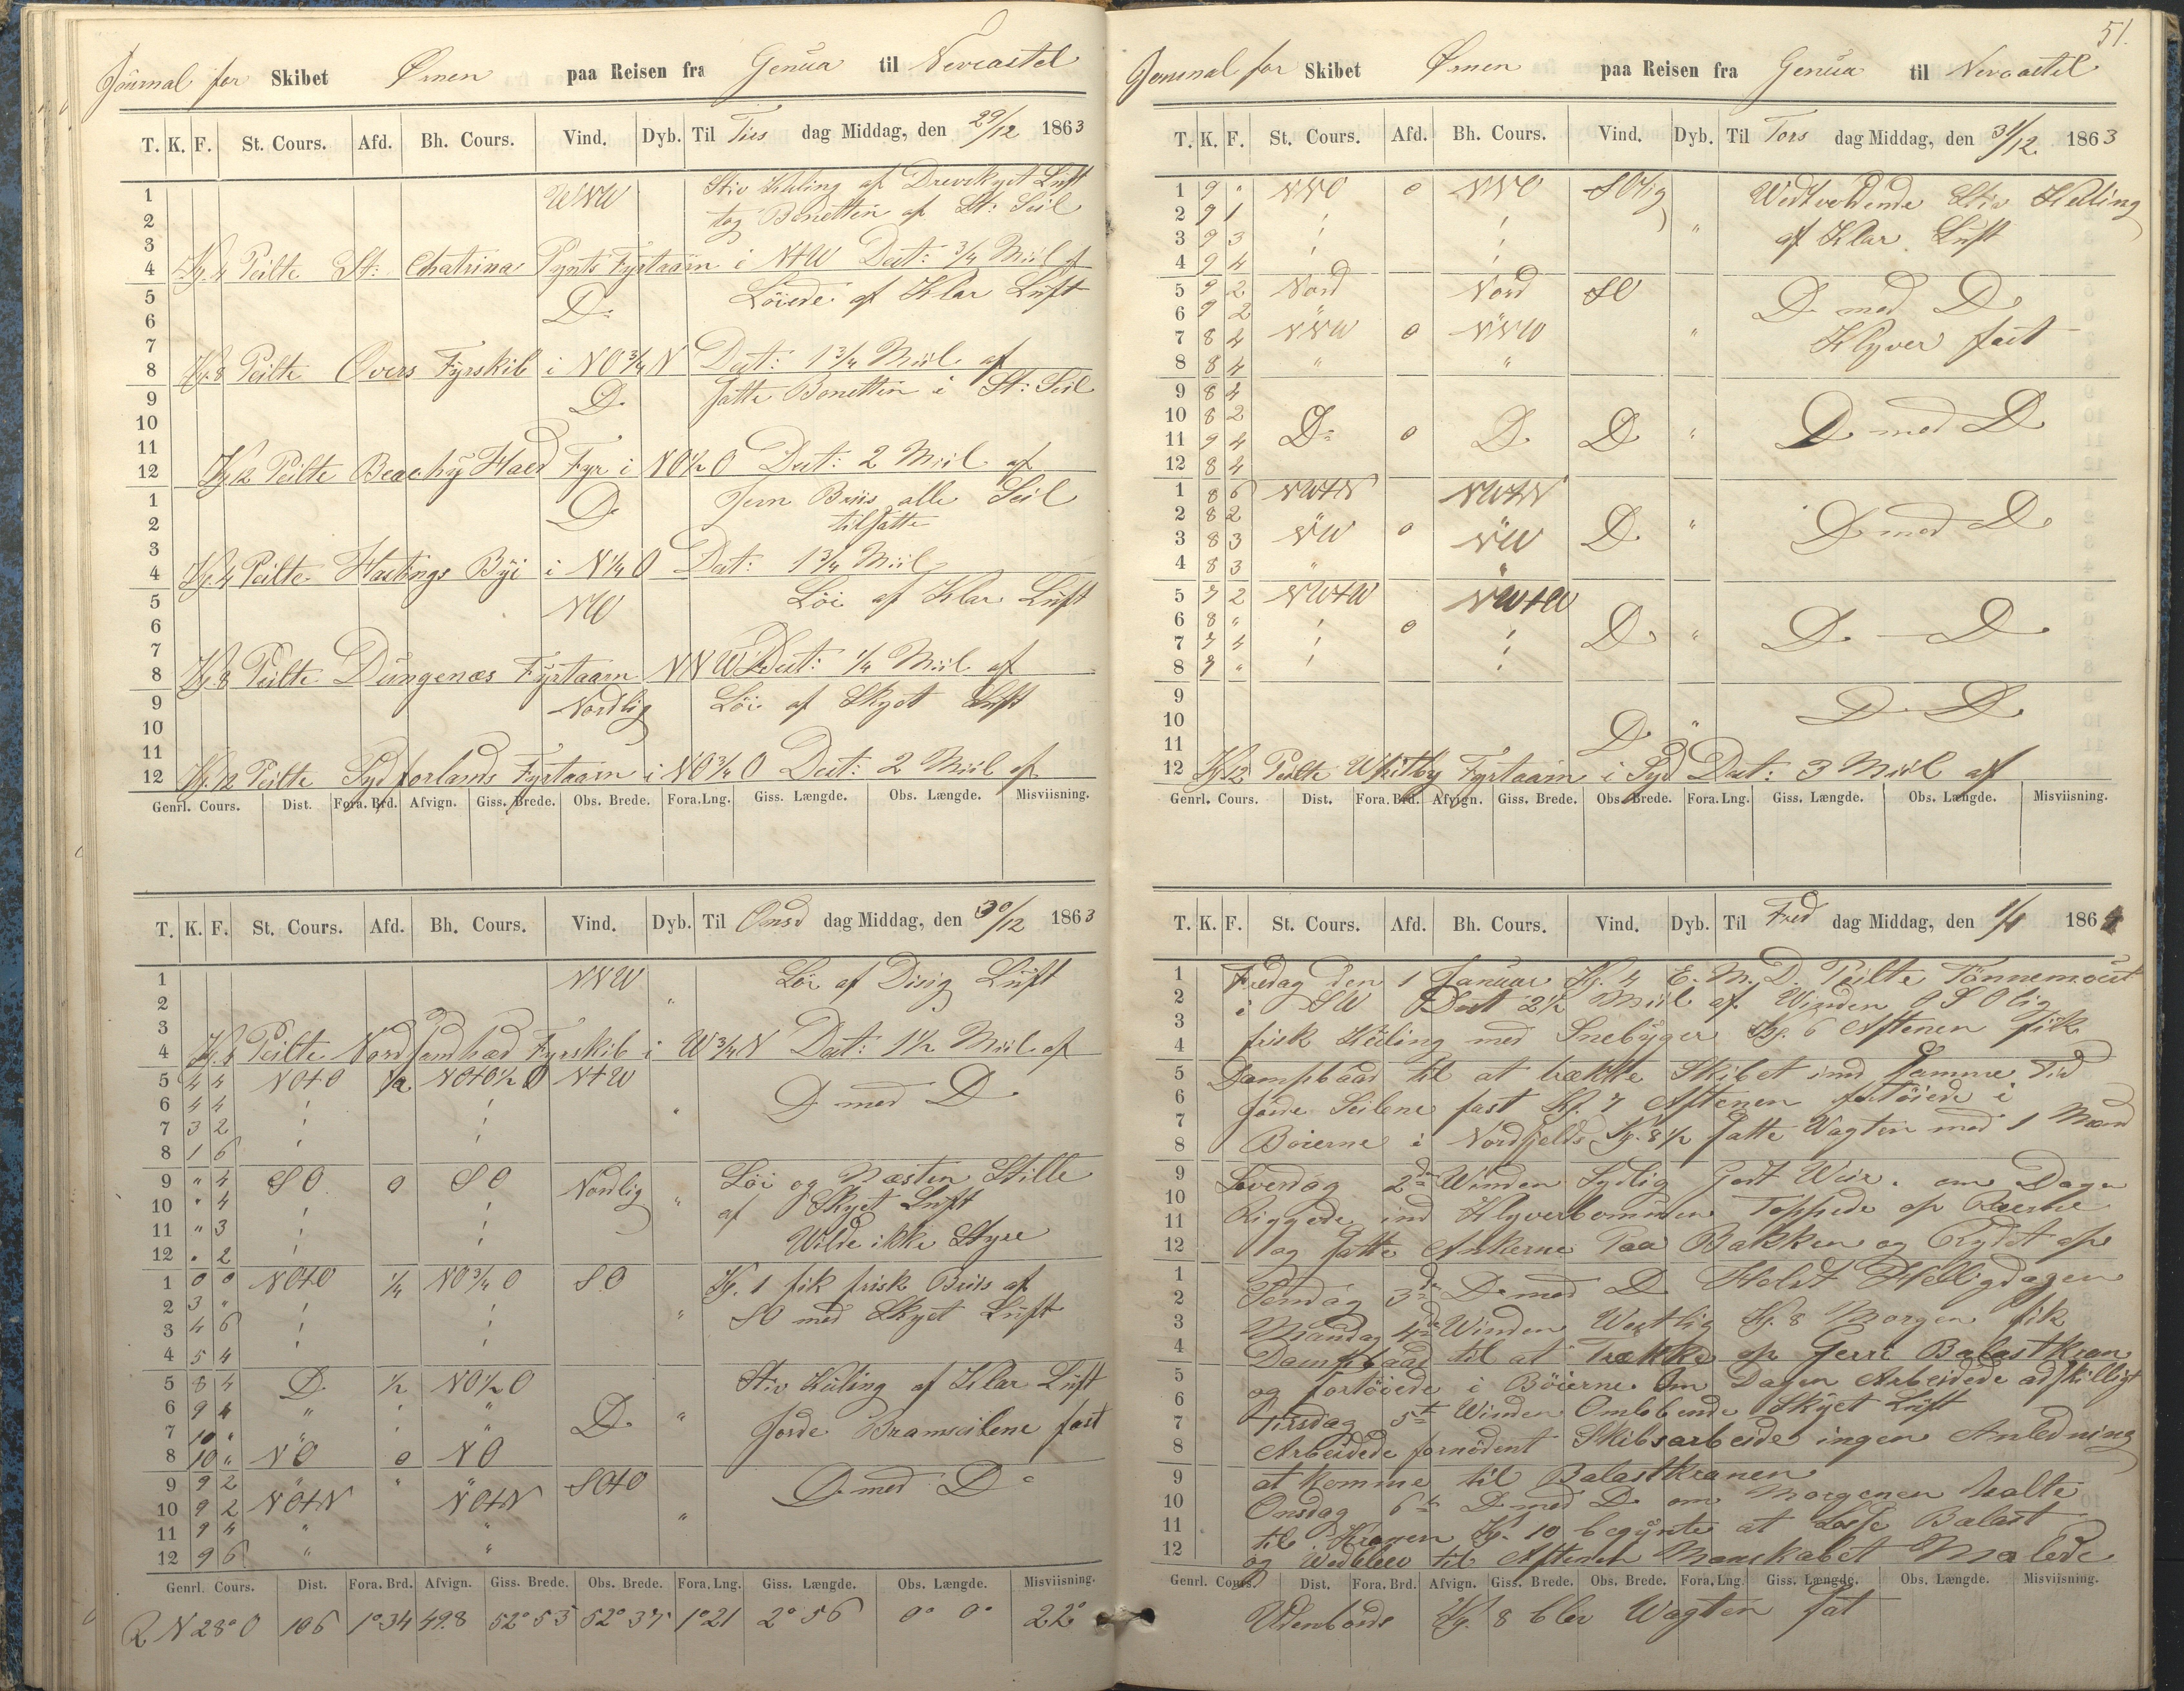 Journal for Skibet Ørnen paa Reisen fra Genua til Newcastel
T. K. F. St. Cours. Afd. Bh. Cours. Vind. Dyb. Til Tirs dag Middag, den 29/12 1863
1 WNW Stiv Kuling af Drevskyet Luft
2 tog Bonetten af St: Seil
3
4 Kl. 4 Peilte St: Chatrina Pynts Fyrtaarn i N+W Dist: 3/4 Miil af
5 Do Löiede af Klar Luft
6
7
8 Kl. 8 Peilte Overs Fyrskib i NO 3/4 N Dist: 1 3/4 Miil af
9 Do Satte Bonetten i St: Seil
10
11
12 Kl 12 Peilte Beachy Haed Fyr i NO 1/2 O Dist: 2 Miil af
1 Do Jevn Briis alle Seil
2 tilsatte
3
4 Kl. 4 Peilte Hastings Byi i N 1/4 O Dist: 1 3/4 Miil
5 NW Löi af Klar Luft
6
7
8 Kl. 8 Peilte Dungenæs Fyrtaarn NNW Dist: 1/4 Miil af
9 Nordlig Löi af Skyet Luft
10
11
12 Kl. 12 Peilte Sydforlands Fyrtaarn i NO 3/4 O Dist: 2 Miil af
Genrl. Cours. Dist. Fora. Brd. Afvign. Giss. Brede. Obs. Brede. Fora.Lng. Giss. Længde. Obs. Længde. Misviisning.
T. K. F. St. Cours. Afd. Bh. Cours. Vind. Dyb. Til Onsd dag Middag, den 30/12 1863
1 NNW Löi af Disig Luft
2 "
3
4 Kl. 4 Peilte Nordsandhæd Fyrskib i W 3/4 N Dist: 1 1/2 Miil af
5 4 4 NO+O 1/2 NO+O 1/2 O N+W D med D
6 4 4 "
7 3 2
8 1 6
9 " 4 SO 0 SO Nordlig " Löi og Næsten Stille
10 " 4 af Skyet Luft
11 " 3
12 " 2 Wilde ikke Styre
1 0 0 NO+O 1/4 NO 3/4 O SO Kl. 1 fik frisk Briis af
2 3 " " SO med Skyet Luft
3 4 6
4 5 4
5 8 4 D. 1/2 NO 1/2 O Stiv Kuling af Klar Luft
6 9 4 " " D. "
7 10 " " " Gorde Bramseilene fast
8 10 " NO 0 NO
9 9 2 " " " SO+O D med D
10 9 2 NO+N NO+N
11 9 4 " " "
12 9 6 " "
Genrl. Cours. Dist. Fora. Brd. Afvign. Giss. Brede. Obs. Brede. Fora.Lng. Giss. Længde. Obs. Længde. Misviisning.
R N 28° O 106 1°34 49.8 52° 53 52° 37 1°21 2° 56 0° 0° 22°
51.
Journal for Skibet Ørnen paa Reisen fra Genua til Newcastel
T. K. F. St. Cours. Afd. Bh. Cours. Vind. Dyb. Til Tors dag Middag, den 31/12 1863
1 9 " NNO 0 NNO SOlig Wedtvedende Stiv Kuling
2 9 1
3 9 3 " af Klar Luft
4 9 4
5 9 2 Nord Nord SO D med D
6 9 2
7 8 4 NNW 0 NNW " Klyver fast
8 8 4 " "
9 8 4
10 8 2 D med D
11 9 4 D 0 D D "
12 8 4
1 8 6 NW+N NW+N
2 8 2 " D med D
3 8 3 NW 0 NW D.
4 8 3 " "
5 7 2 NW+W NW+W
6 8 " 0
7 7 4 D " D D
8 7 "
9 D D
10 "
11 D
12 Kl. 12 Peilte Whitby Fyrtaarn i Syd Dist: 3 Miil af
Genrl. Cours. Dist. Fora. Brd. Afvign. Giss. Brede. Obs. Brede. Fora.Lng. Giss. Længde. Obs. Længde. Misviisning.
T. K. F. St. Cours. Afd. Bh. Cours. Vind. Dyb. Til Fred dag Middag, den 1/1 1864
1 Fredag den 1 Januar Kl. 4 E. M. D. Peilte Tönnemout
2 i SW Dist 2 1/2 Miil af Winden OSOlig
3 frisk Kuling med Snebyger Kl. 6 Aftenen fik
4
5 Dampbaad til at trække Skibet ind Samme Tid
6 Gorde Seilene fast Kl. 7 Aftenen fortöiede i
7 Böierne i Nordsjelds Kl. 8 1/2 Satte Wagten med 1 Mand
8
9 Löverdag 2de Winden Sydlig Godt Wäir. om Dagen
10 Liggede ind Klyverbommen Toppede op Raerne
11
12 og Satte Ankerne Paa Bakken og Rydet op
1 Sendag 3de D med D Holdt Helligdagen
2
3 Mandag 4de Winden Westlig Kl. 8 Morgen fik
4 Dampbaad til at Trække op Gerri Balastkran
5 og fortöiede i Böierne. Om Dagen Arbeidede adskilligt
6 Tirsdag 5te Winden Omlöbende Skyet Luft
7
8 Arbeidede fornödent Skibsarbeide ingen Anledning
9 at komme til Balastkranen
10 Onsdag 6te D med D om Morgenen halte
11 til Kranen Kl. 10 begynte at Losse Balast
12 og Wedblew til Aftenen Manskabet Malede
Genrl. Cours. Dist. Fora. Brd. Afvign. Giss. Brede. Obs. Brede. Fora.Lng. Giss. Længde. Obs. Længde. Misviisning.
Udenbords Kl. 8 blev Wagten sat